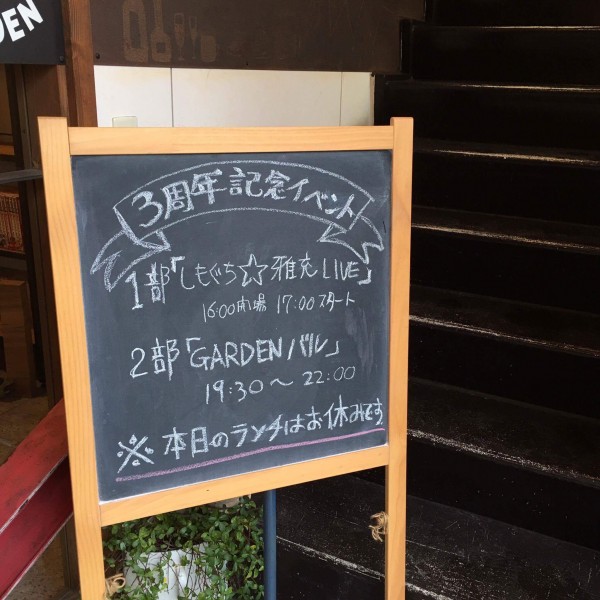 DEN
3周年記念イベント
1部「しもぐち☆雅充 LIVE」
16:00開場 17:00スタート
2部「GARDENバル」
19:30〜22:00
※本日のランチはお休みです